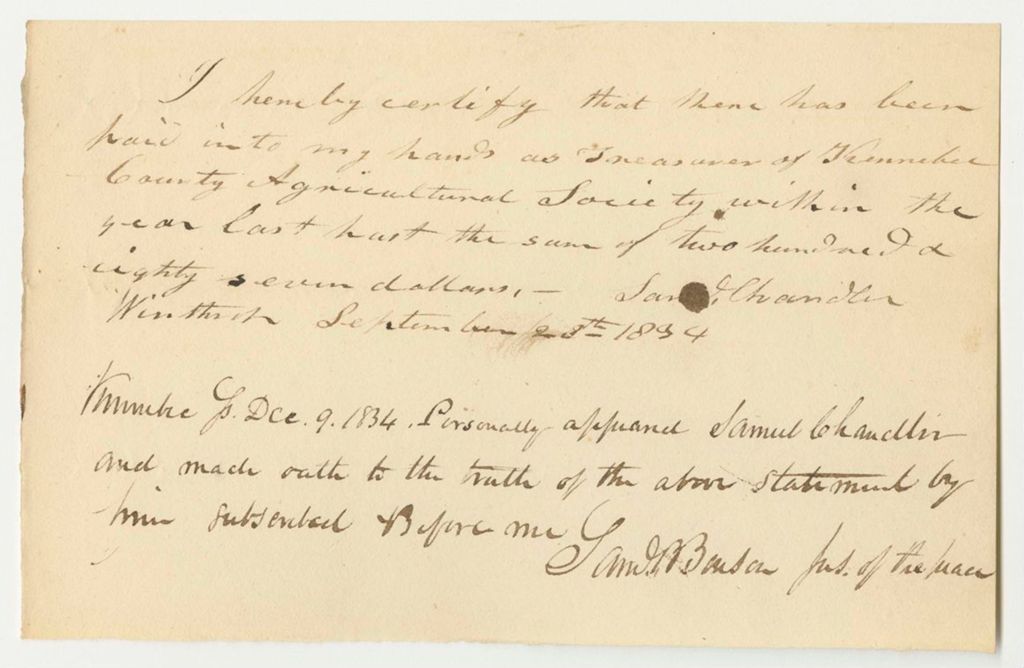 I hereby certify that there has been
paid into my hands as Treasurer of Kennebec
County Agricultural Society within the
year last past the sum of two hundred &
eighty seven dollars. — Saml. Chandler
Winthrop September 28th 1834
Kennebec Ss. Dec. 9. 1834. Personally appeared Samuel Chandler
and made oath to the truth of the above statement by
him subscribed Before me
Saml. Benson Jus. of the peace